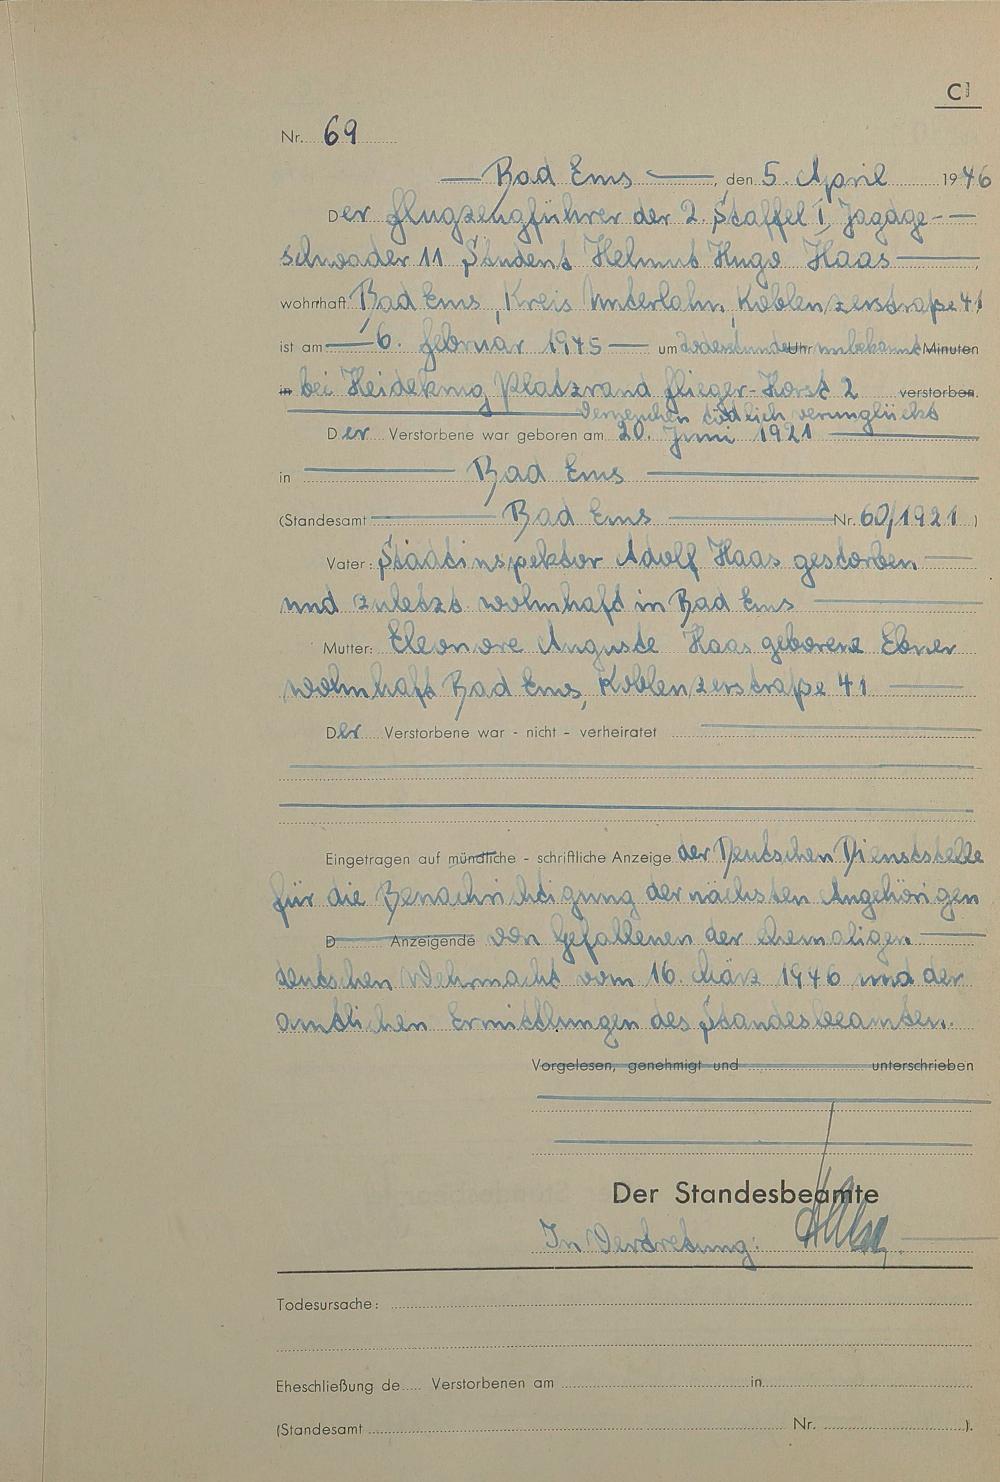 C1
Nr. 69
Bad Ems, den 5. April 1946
Der Flugzeugführer der 2. Staffel I. Jagdge-
schwader 11 Student Helmut Hugo Haas
wohnhaft Bad Ems, Kreis Unterlahn, Koblenzerstraße 41
ist am 6. Februar 1945 um Todesstunde Uhr unbekannt Minuten
in bei Heidekrug Platzrand Flieger-Horst 2 verstorben.
tödlich verunglückt
Der Verstorbene war geboren am 20. Juni 1921
in Bad Ems
(Standesamt Bad Ems Nr. 60/1921)
Vater: Stadtinspektor Adolf Haas gestorben
und zuletzt wohnhaft in Bad Ems
Mutter: Eleonore Auguste Haas geborene Ebner
wohnhaft Bad Ems, Koblenzerstraße 41
Der Verstorbene war - nicht - verheiratet
Eingetragen auf mündliche - schriftliche Anzeige der Deutschen Dienststelle
für die Benachrichtigung der nächsten Angehörigen
D Anzeigende von Gefallenen der ehemaligen
deutschen Wehrmacht vom 16. März 1946 und der
amtlichen Ermittlungen des Standesbeamten.
Vorgelesen, genehmigt und unterschrieben
Der Standesbeamte
In Vertretung:
Todesursache:
Eheschließung de Verstorbenen am in
(Standesamt Nr. ).